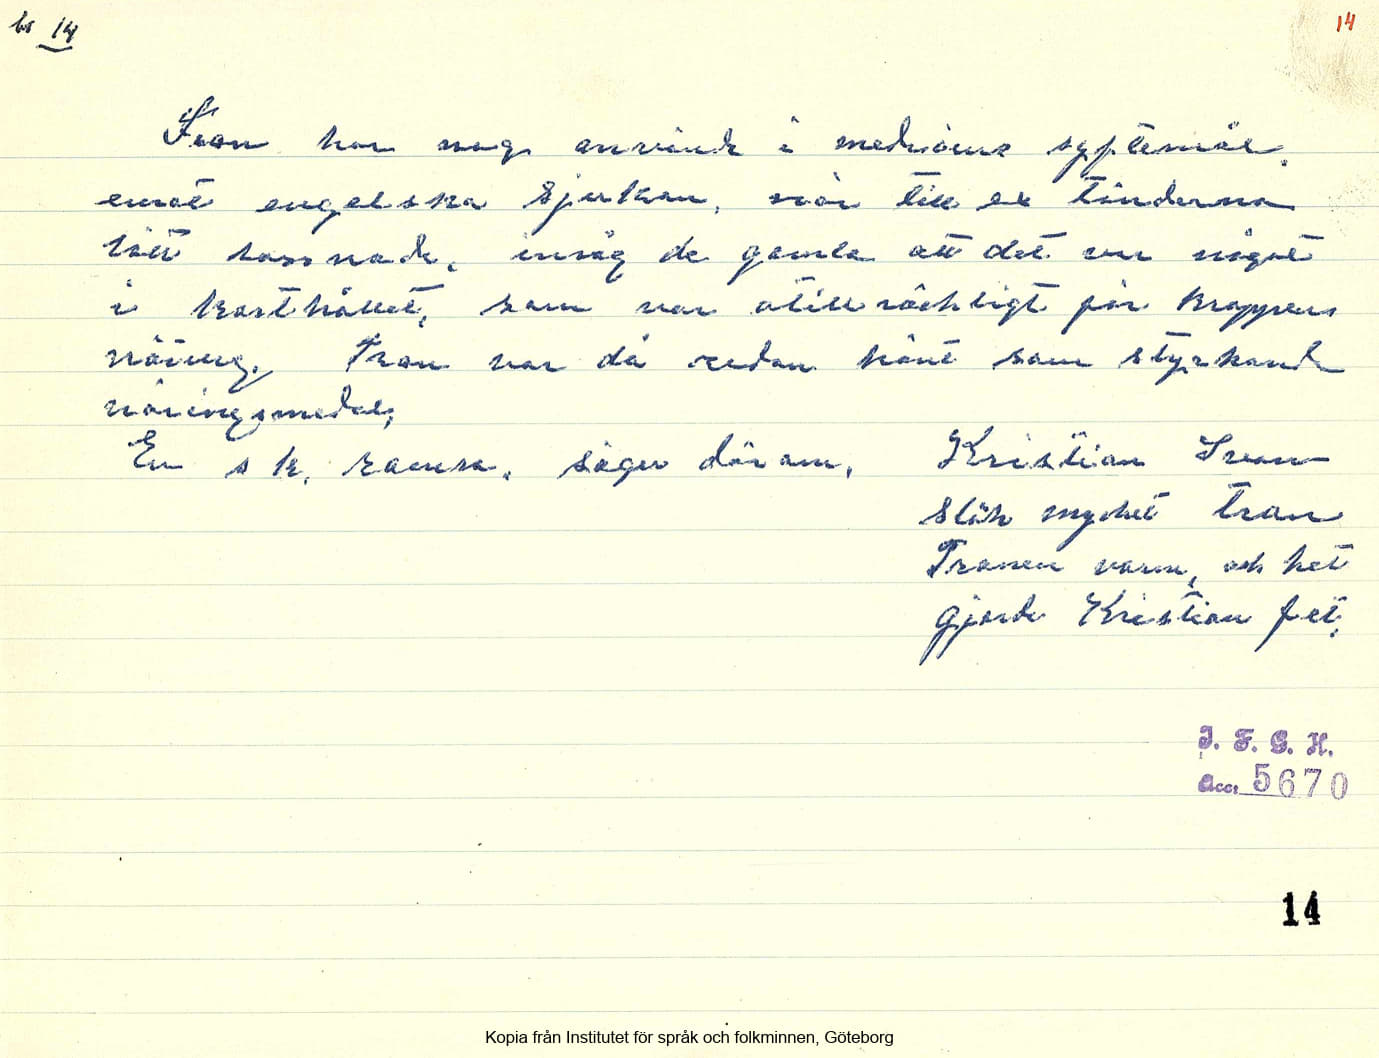 14
14
Tran har nog använde i medicins syftemål.
emot engelska sjukan, när till ex tänderna
lätt lossnade, insåg de gamla att det var något
i kosthållet, som var otillräckligt för kroppens
näring. Tran var då redan känt som styrkande
näringsmedel,
En s k. ramsa. säger där om,
Kristian Tran
Slök mycket tran
Tranen varm, och het
gjorde Kristian fet.
I. F. G. H.
Acc. 5670
14
Kopia från Institutet för språk och folkminnen, Göteborg